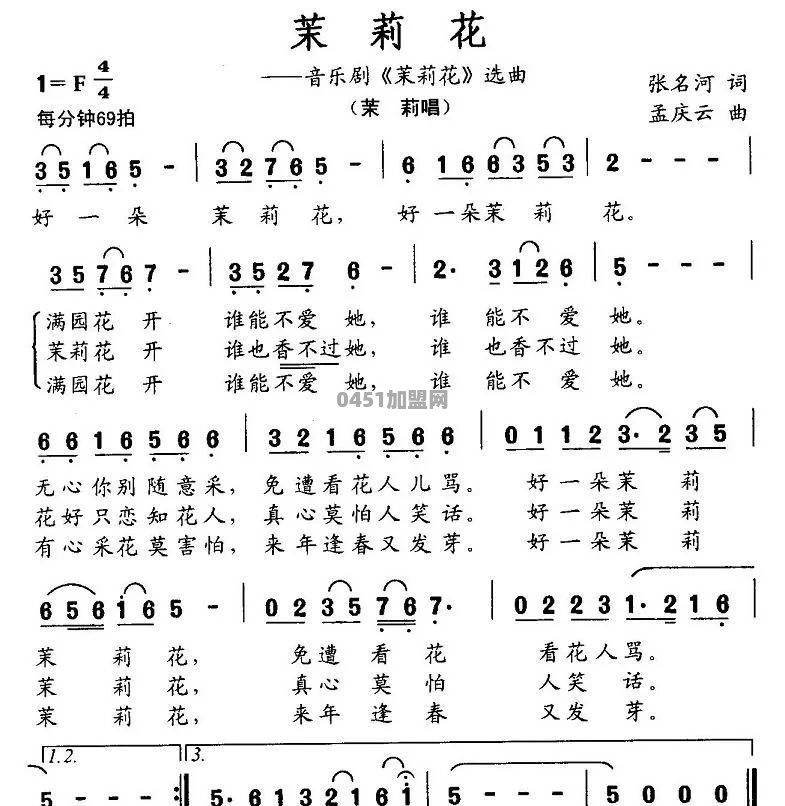 茉 莉 花
——音乐剧《茉莉花》选曲
(茉 莉唱)
1=F 4/4
每分钟69拍
张名河 词
孟庆云 曲
3 5 1 6 5 - | 3 2 7 6 5 - | 6 1 6 6 3 5 3 | 2 - - - |
好 一 朵 茉 莉 花, 好 一 朵 茉 莉 花。
3 5 7 6 7 - | 3 5 2 7 6 - | 2· 3 1 2 6 | 5 - - - |
满园花 开 谁能不爱 她, 谁 能不 爱 她。
茉莉花 开 谁也香不过她, 谁 也香不过 她。
满园花 开 谁能不爱 她, 谁 能不 爱 她。
0451加盟网
6 6 1 6 5 6 6 | 3 2 1 6 5 6 6 | 0 1 1 2 3· 2 3 5 |
无心你别随意采, 免遭看花人儿骂。 好一朵茉 莉
花好只恋知花人, 真心莫怕人笑话。 好一朵茉 莉
有心采花莫害怕, 来年逢春又发芽。 好一朵茉 莉
6 5 6 1 6 5 - | 0 2 3 5 7 6 7· | 0 2 2 3 1· 2 1 6 |
茉 莉 花, 免遭看 花 看花人骂。
茉 莉 花, 真心莫 怕 人笑 话。
茉 莉 花, 来年逢 春 又发 芽。
1.2. 3.
5 - - - :| 5· 6 1 3 2 1 6 1 | 5 - - - | 5 0 0 0